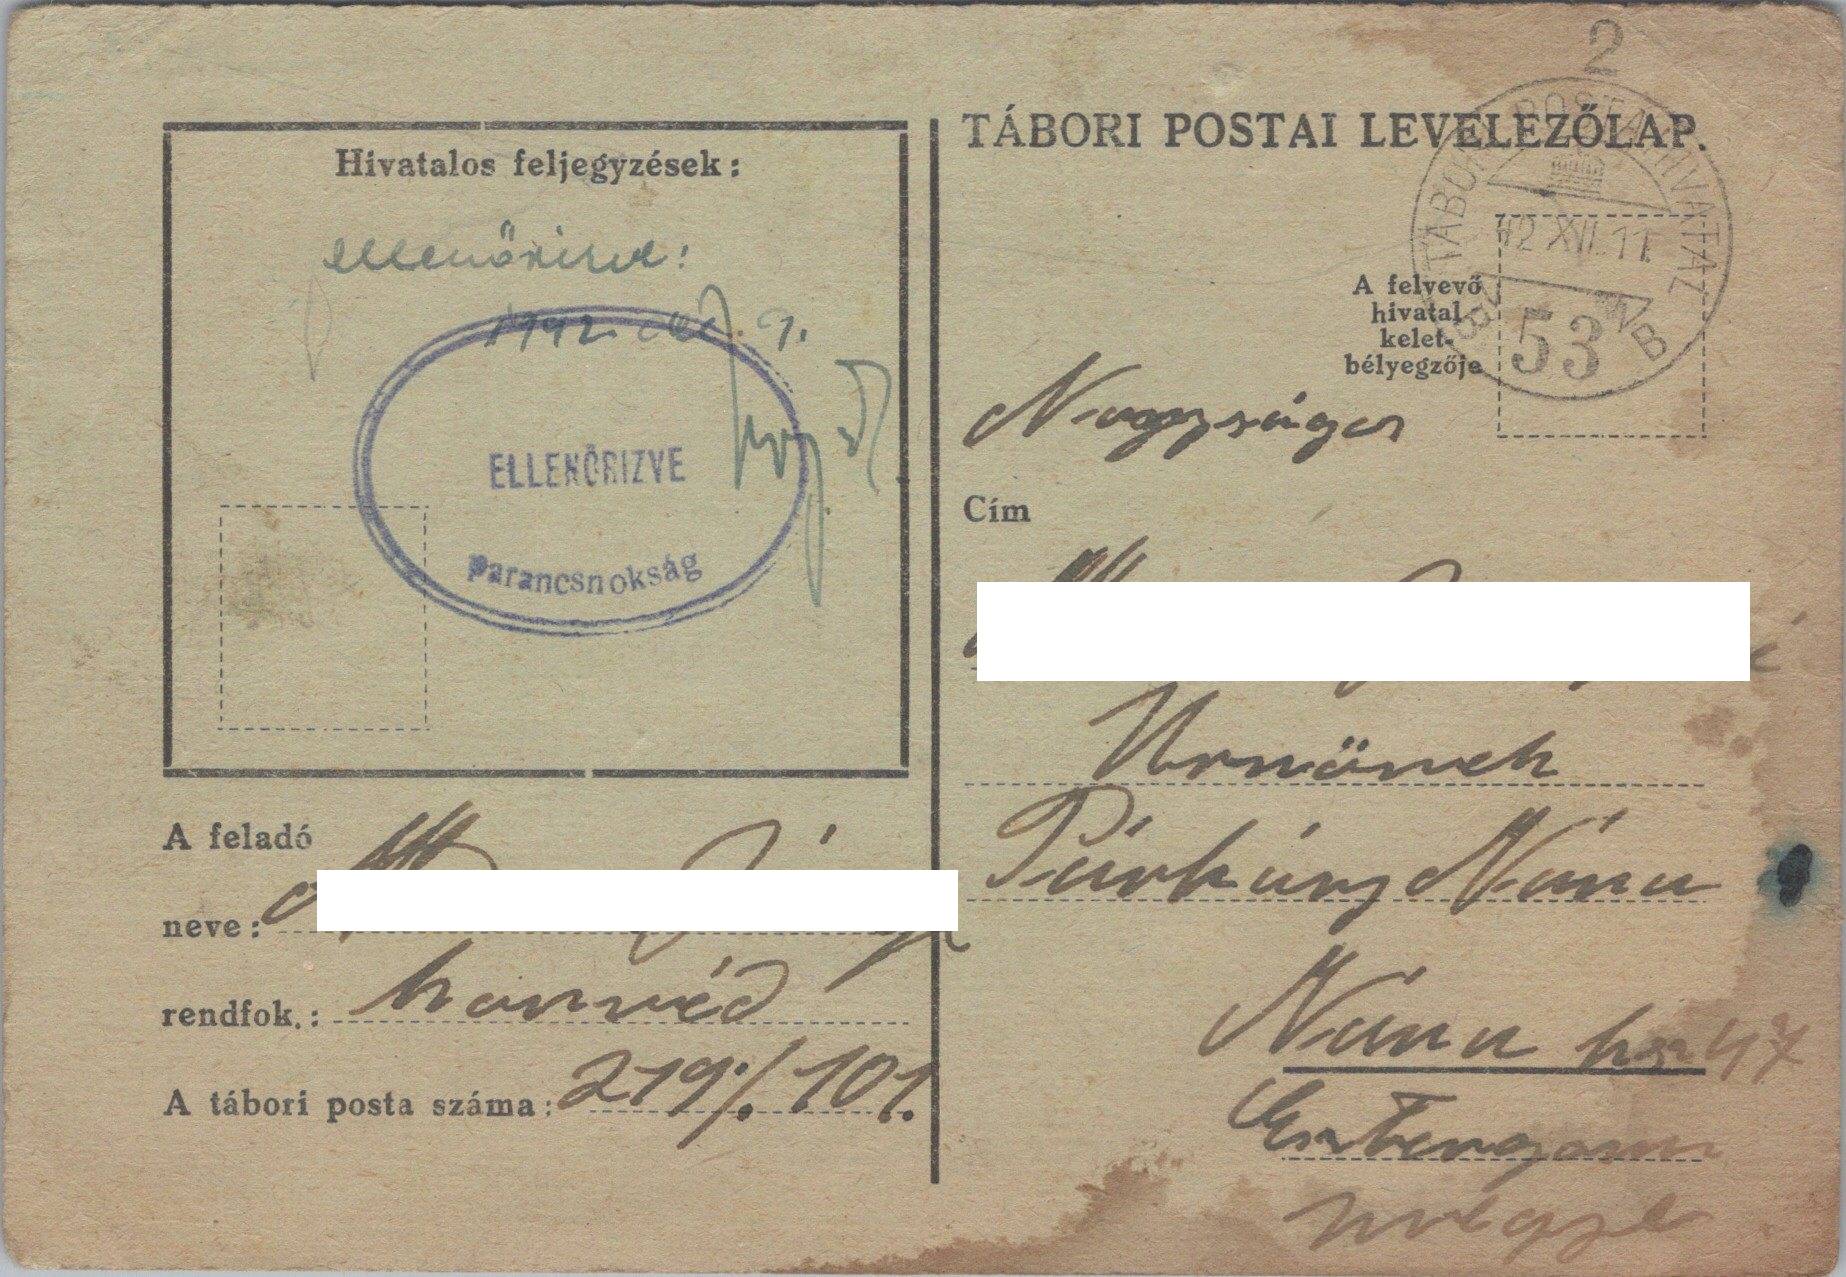 2
TÁBORI POSTAI LEVELEZŐLAP.
TÁBORI POSTAHIVATAL
42 XII. 11.
53
B
A felvevő
hivatal
kelet-
bélyegzője
Hivatalos feljegyzések:
ellenőrizve:
1942. 9.
ELLENŐRIZVE
parancsnokság
Nagyságos
Cím
Urnönek
Párkány Nána
Nána hsz 47
Esztergom
megye
A feladó
neve:
rendfok.: honvéd
A tábori posta száma: 219/. 101.